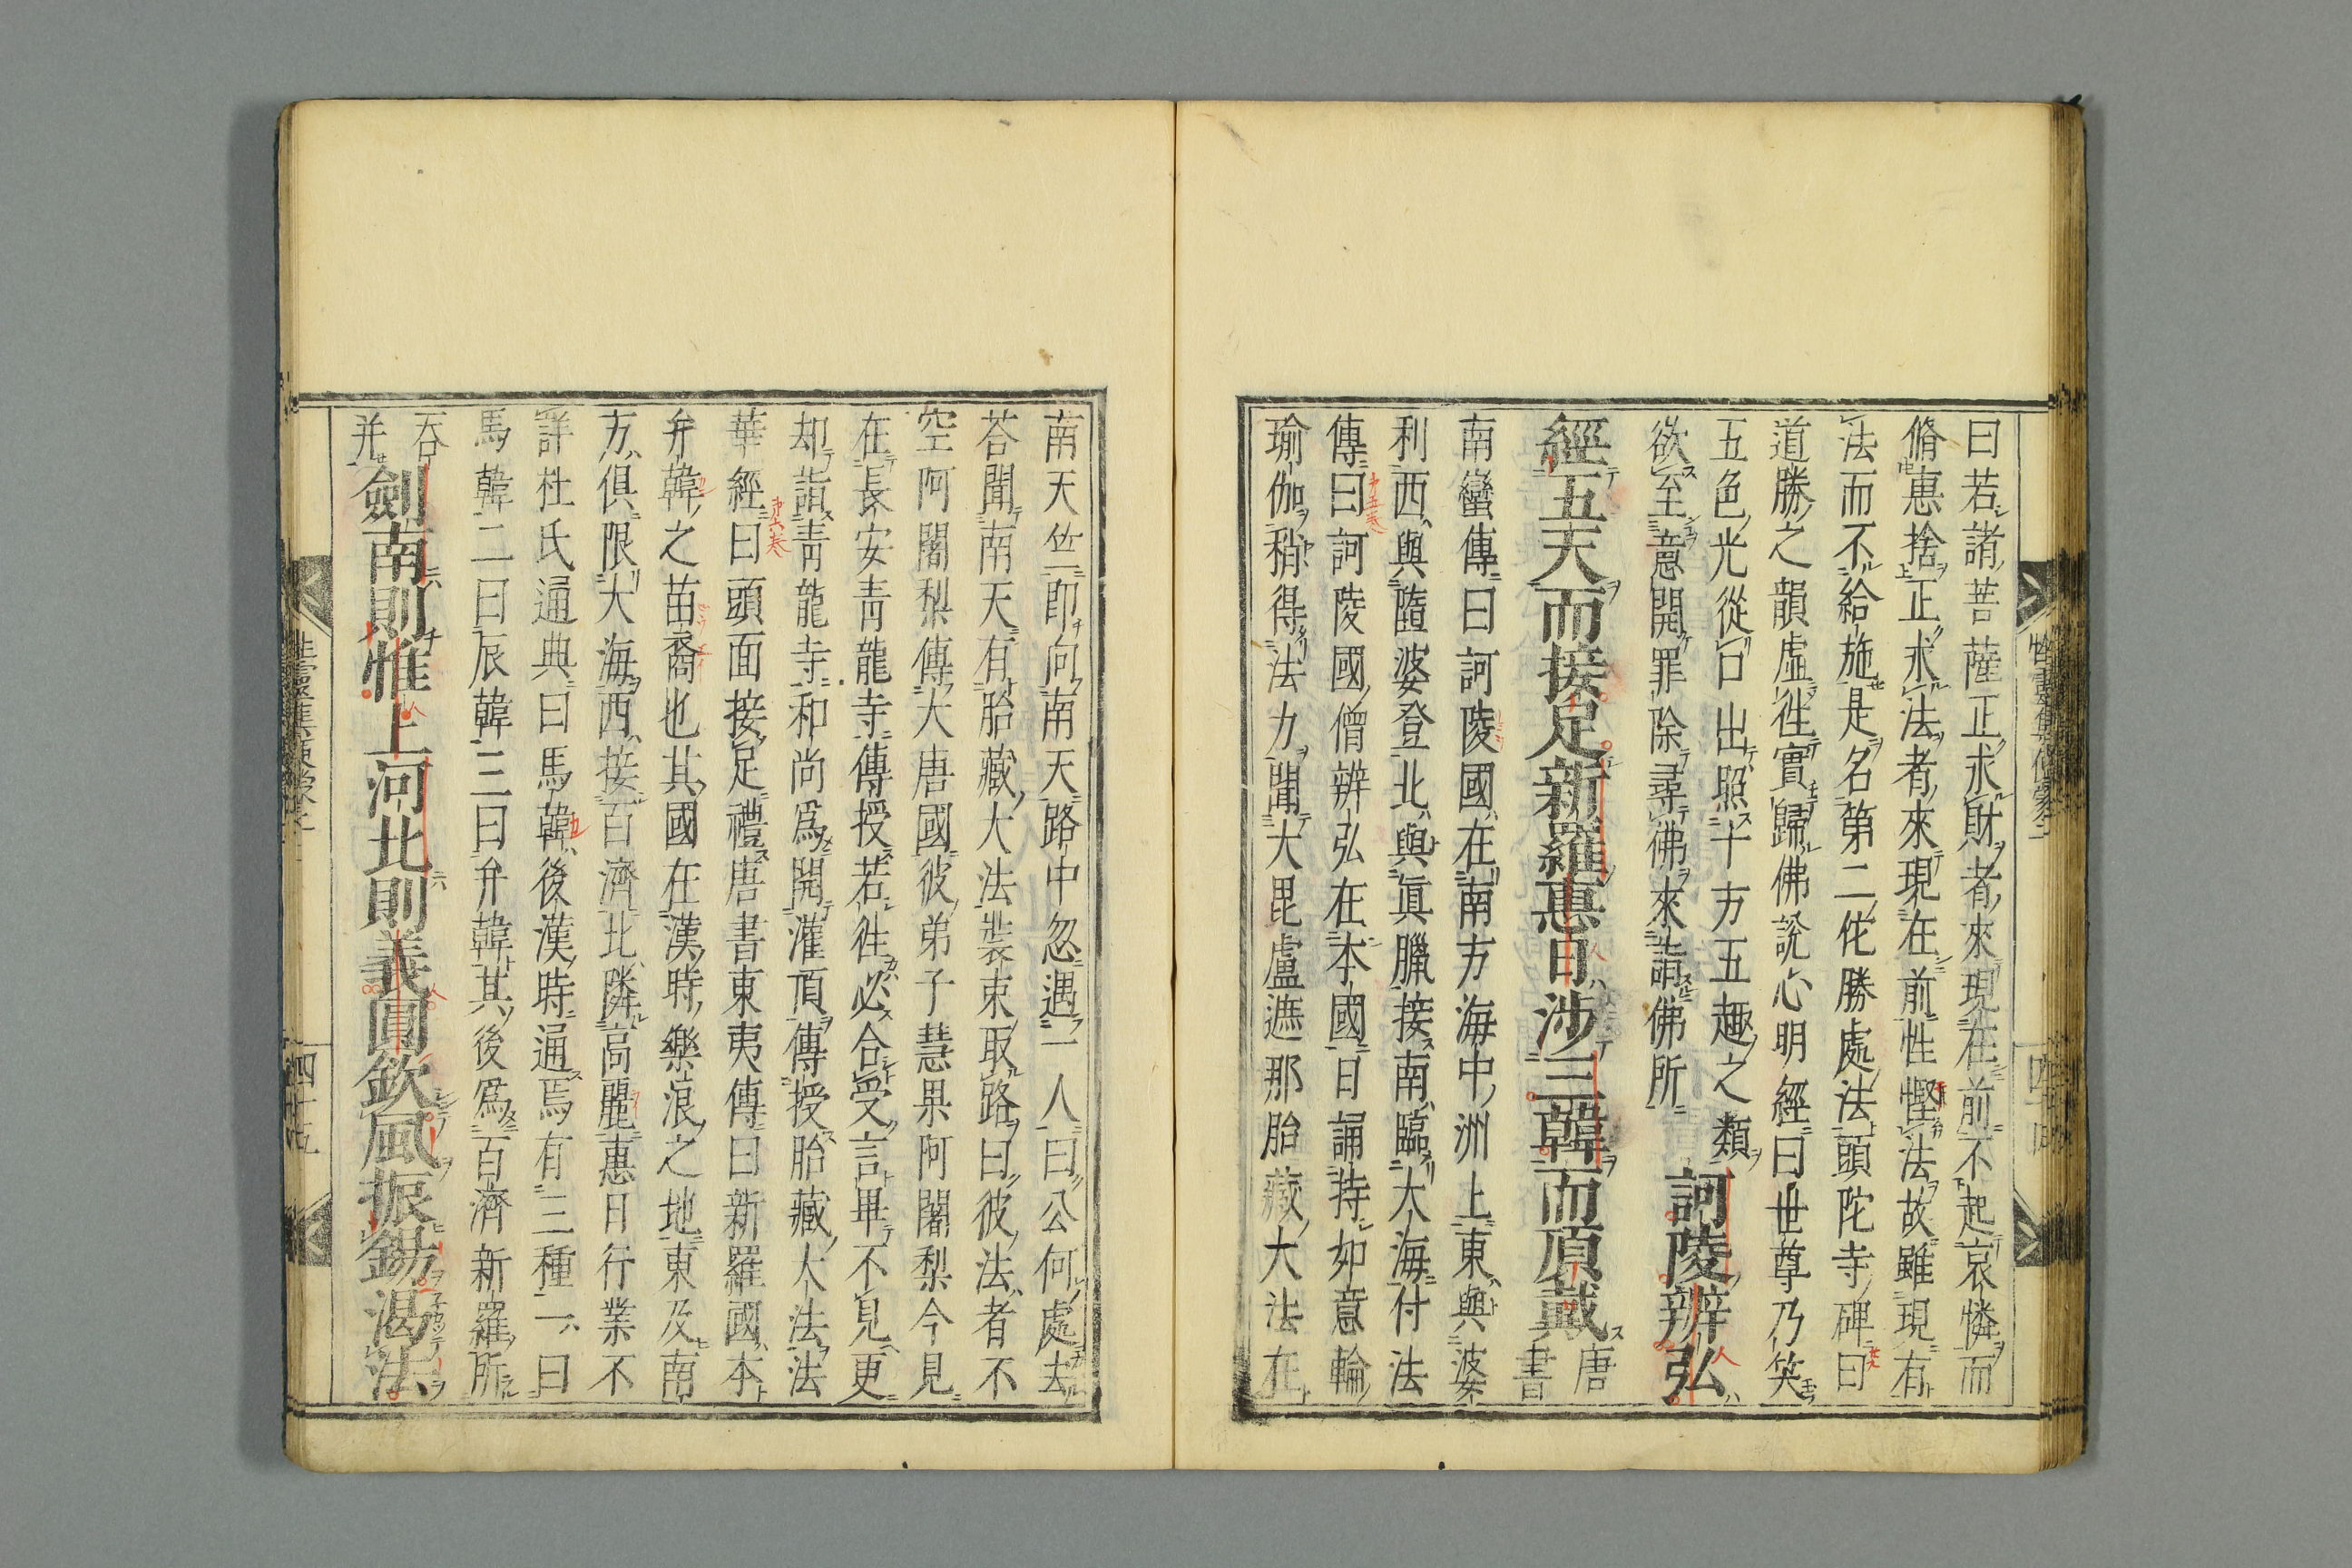 曰若諸菩薩正求財者來現在前不起哀憐而
脩惠捨正求法者來現在前性慳法故雖現有
法而不給施是名第二佗勝處法頭陀寺碑曰
道勝之韻虛徃實歸佛說心明經曰世尊乃笑
五色光從口出照十方五趣之類
欲至意開罪除尋佛來詣佛所
訶陵辨弘
經五天而接足新羅惠日涉三韓而頂戴
唐
書
南蠻傳曰訶陵國在南方海中洲上東與婆
利西與墮婆登北與眞臘接南臨大海付法
傳曰訶陵國僧辨弘在本國日誦持如意輪
瑜伽稍得法力聞大毘盧遮那胎藏大法在
南天竺即向南天路中忽遇一人曰公何處去
荅聞南天有胎藏大法裝束取路曰彼法者不
空阿闍梨傳大唐國彼弟子慧果阿闍梨今見
在長安青龍寺傳授若徃必合受言畢不見更
却詣青龍寺和尚爲開灌頂傳授胎藏大法法
華經曰頭面接足禮唐書東夷傳曰新羅國本
弁韓之苗裔也其國在漢時樂浪之地東及南
方俱限大海西接百濟北隣高麗惠日行業不
詳杜氏通典曰馬韓後漢時通焉有三種一曰
馬韓二曰辰韓三曰弁韓其後爲百濟新羅所
吞
并
劍南則惟上河北則義圓欽風振錫渴法
四十五